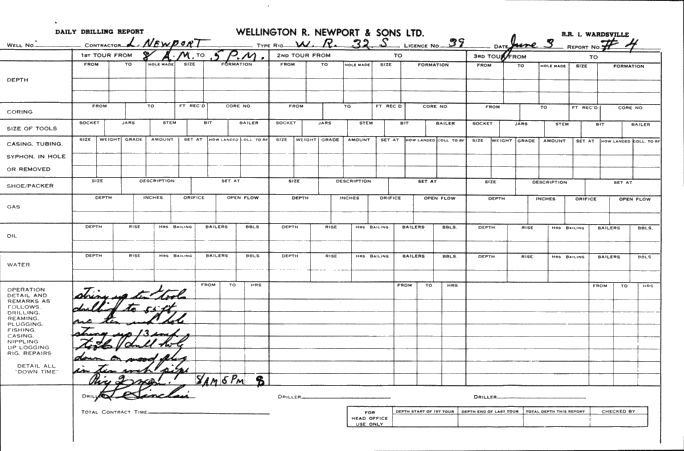 DAILY DRILLING REPORT WELLINGTON R. NEWPORT & SONS LTD. R.R. 1. WARDSVILLE
WELL No CONTRACTOR L. NEWPORT TYPE RIG W. R. 32 S LICENCE No 99 DATE June 3 REPORT No # 4
1ST TOUR FROM 8 A.M. TO 5 P.M. 2ND TOUR FROM TO 3RD TOUR FROM TO
FROM TO HOLE MADE SIZE FORMATION FROM TO HOLE MADE SIZE FORMATION FROM TO HOLE MADE SIZE FORMATION
DEPTH
FROM TO FT REC'D CORE NO FROM TO FT REC'D CORE NO FROM TO FT REC'D CORE NO
CORING
SOCKET JARS STEM BIT BAILER SOCKET JARS STEM BIT BAILER SOCKET JARS STEM BIT BAILER
SIZE OF TOOLS
SIZE WEIGHT GRADE AMOUNT SET AT HOW LANDED COLL. TO RF SIZE WEIGHT GRADE AMOUNT SET AT HOW LANDED COLL. TO RF SIZE WEIGHT GRADE AMOUNT SET AT HOW LANDED COLL. TO RF
CASING. TUBING.
SYPHON. IN HOLE
OR REMOVED
SIZE DESCRIPTION SET AT SIZE DESCRIPTION SET AT SIZE DESCRIPTION SET AT
SHOE/PACKER
DEPTH INCHES ORIFICE OPEN FLOW DEPTH INCHES ORIFICE OPEN FLOW DEPTH INCHES ORIFICE OPEN FLOW
GAS
DEPTH RISE HRS BAILING BAILERS BBLS. DEPTH RISE HRS BAILING BAILERS BBLS. DEPTH RISE HRS BAILING BAILERS BBLS.
OIL
DEPTH RISE HRS BAILING BAILERS BBLS DEPTH RISE HRS BAILING BAILERS BBLS. DEPTH RISE HRS BAILING BAILERS BBLS
WATER
FROM TO HRS FROM TO HRS FROM TO HRS
OPERATION
DETAIL AND
REMARKS AS
FOLLOWS
DRILLING.
REAMING.
PLUGGING.
FISHING.
CASING.
NIPPLING
UP LOGGING
RIG. REPAIRS
DETAIL ALL
"DOWN TIME"
string up ten" tools
drilling to 55 ft,
ten inch hole
string up 13 inch
tools drill hole
down on wood plug
in ten inch pipe
8 AM 5 PM 8
DRILLER Sinclair DRILLER DRILLER
TOTAL CONTRACT TIME
FOR
HEAD OFFICE
USE ONLY
DEPTH START OF 1ST TOUR DEPTH END OF LAST TOUR TOTAL DEPTH THIS REPORT CHECKED BY